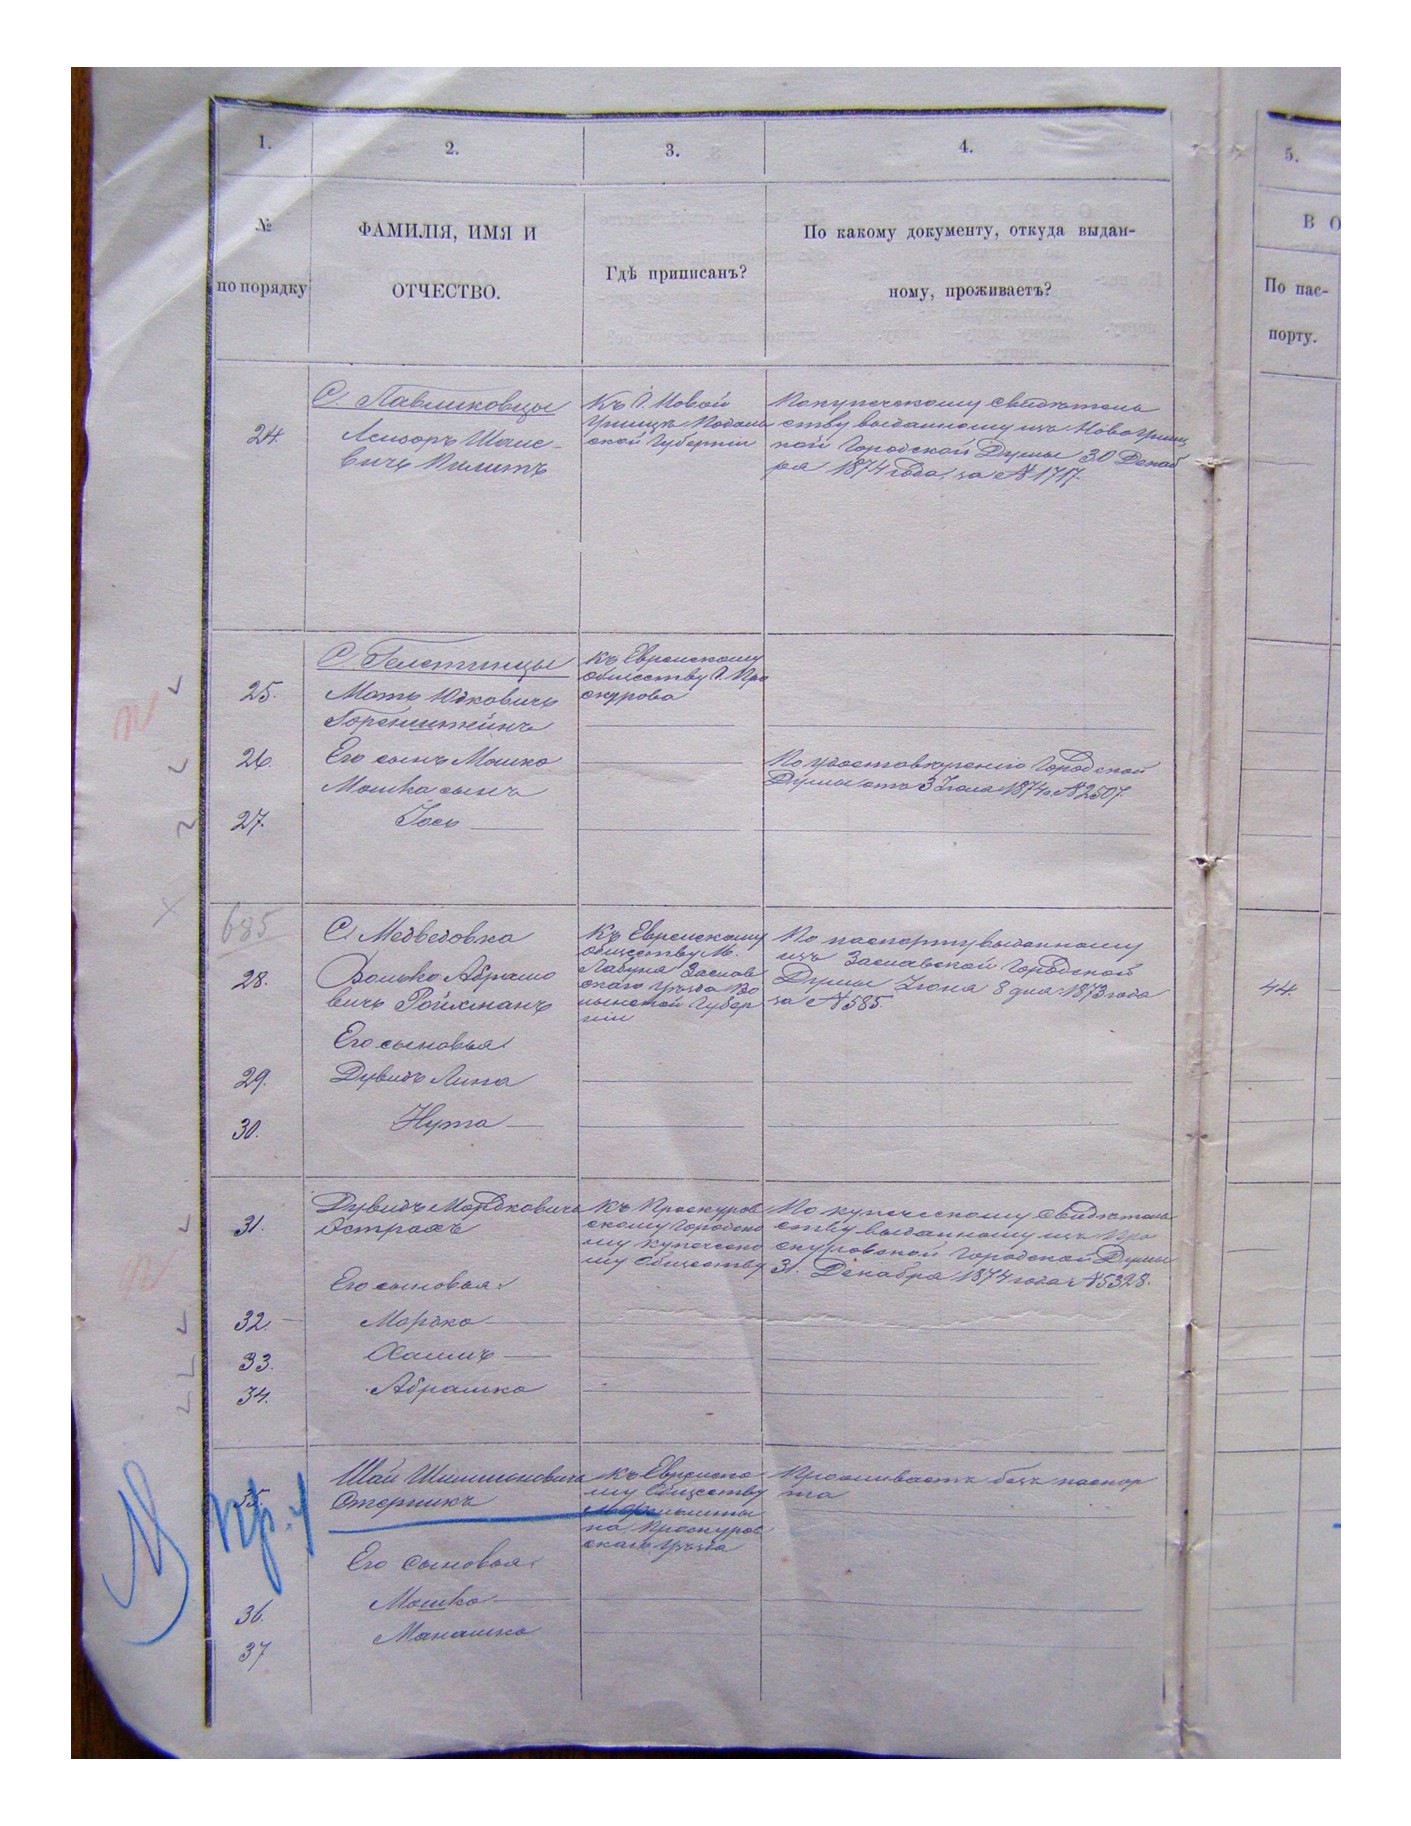 1.
2.
3.
4.
5.
№
по порядку
ФАМИЛІЯ, ИМЯ И
ОТЧЕСТВО.
Гдѣ приписанъ?
По какому документу, откуда выдан-
ному, проживаетъ?
В О
По пас-
порту.
С. Павликовцы
24.
Вичъ
Къ г. Новой
Ушицѣ Подоль
ской Губерніи
По купеческому свидѣтель
ству выданному изъ Новоушиц
кой Городской Думы 30 Декаб
ря 1874 года, за № 1717.
С. Гелетинцы
25.
Мать Юдковичъ
Горенштейнъ
Къ Еврейскому
обществу г. Про
скурова
26.
Его сынъ Мошко
По удостовѣренію Городской
Думы отъ 3 Іюля 1874 г. № 2507.
Мошка сынъ
27.
Іось
685
С. Медведовка
28.
Волько Абрамо
вичъ Ройхманъ
Къ Еврейскому
обществу м.
Лабуня Заслав
скаго уѣзда Во
лынской Губер
ніи
По паспорту выданному
изъ Заславской Городской
Думы Іюня 8 дня 1873 года
за № 585.
44.
Его сыновья:
29.
Дувидъ Липа
30.
Нута
31.
Дувидъ Мордковичъ
Острахъ
Къ Проскуров
скому Городско
му купеческо
му Обществу
По купеческому свидѣтель
ству выданному изъ Про
скуровской Городской Думы
31. Декабря 1874 года № 5328.
Его сыновья:
32.
Мордко
33.
Хаимъ
34.
Абрашко
35.
пр. 4
Шая Шимшоновичъ
Стерникъ
Къ Еврейско
му Обществу
на Проскуров
скаго уѣзда
Проживаетъ безъ паспор
та
Его сыновья:
36.
Мошко
37
Манашко